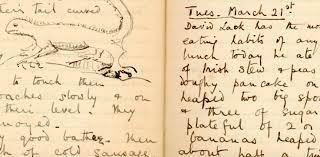 their tail curved
to touch their
oaches slowly & on
their level. They
noyed.
y good bather. Then
h of cold sausage
Tues. March 21st
David Lack has the mo
eating habits of any
lunch today he ate
of Irish Stew & peas
doughy pancake on
heaped two big spo
& three of sugar
plateful of 2 or
bananas heaped
about half